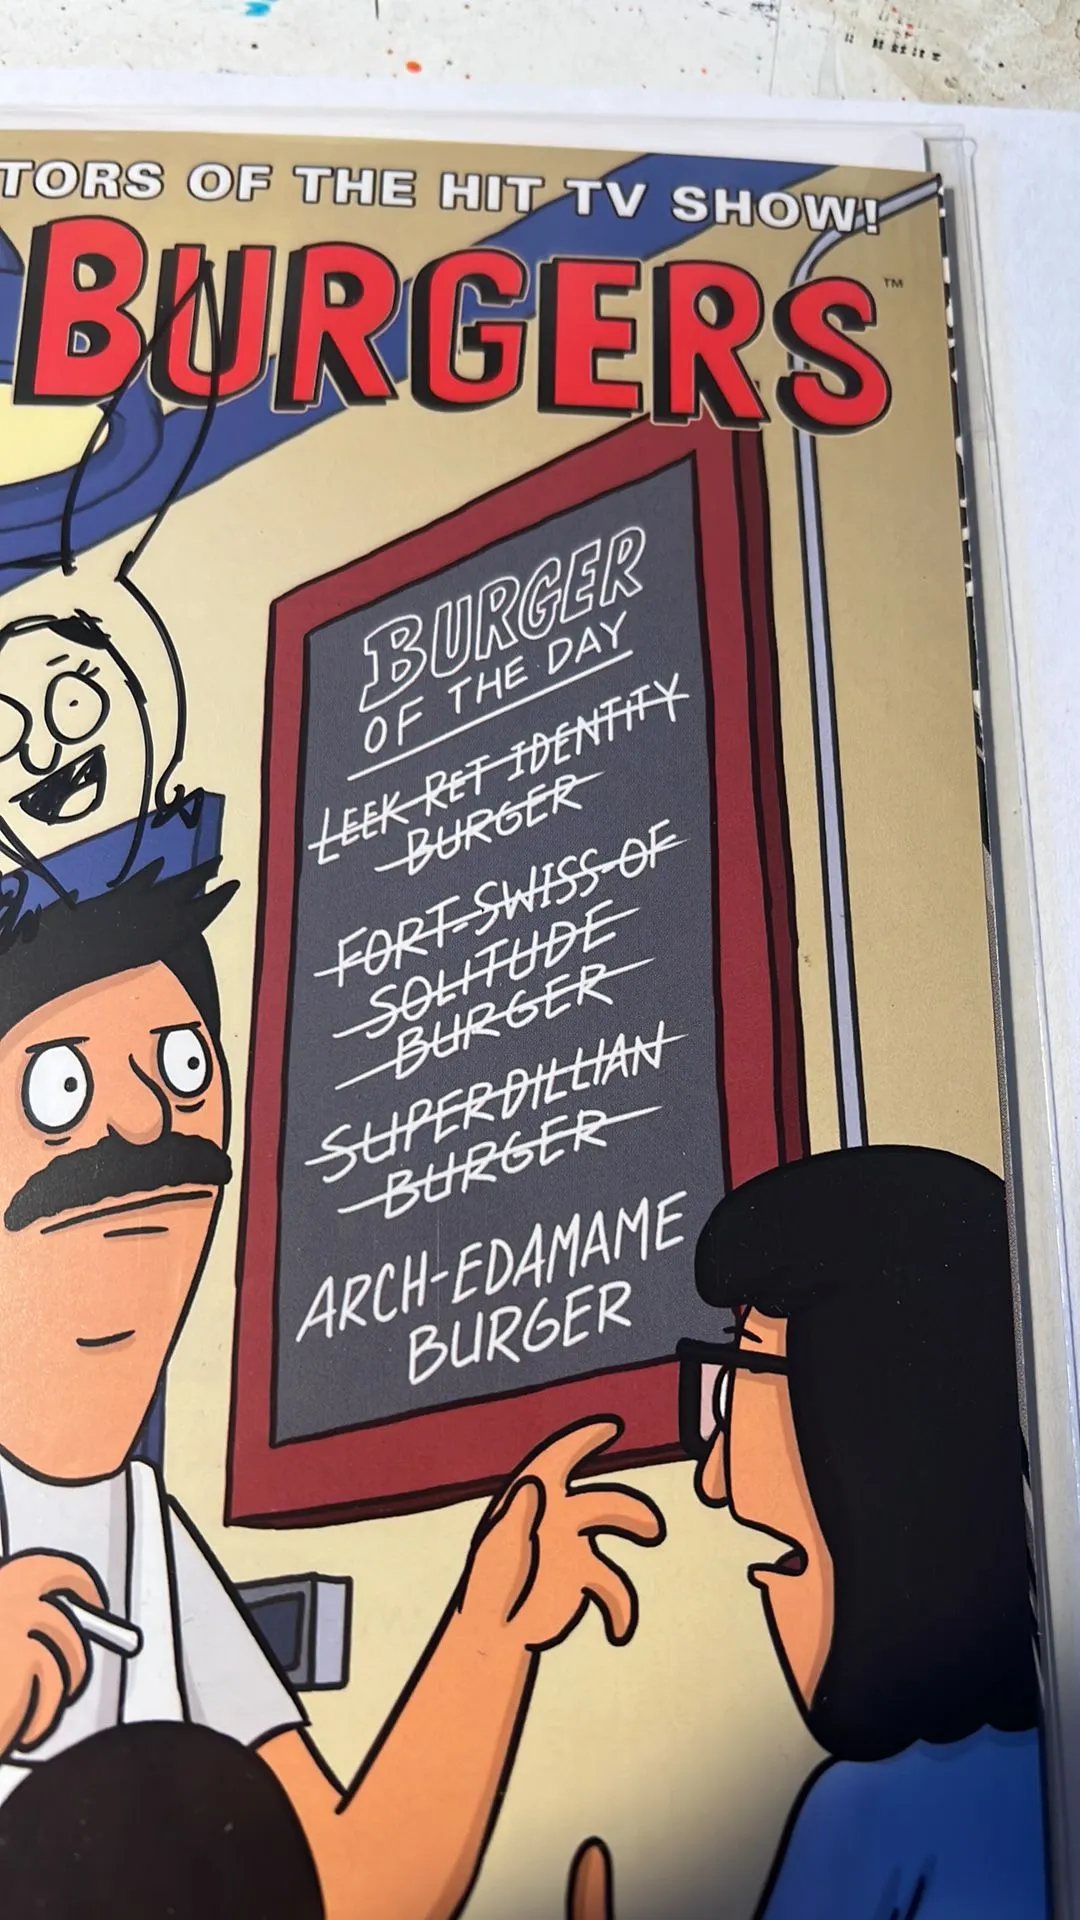 TORS OF THE HIT TV SHOW!
BURGERS™
BURGER
OF THE DAY
LEEK-RET IDENTITY
BURGER
FORT-SWISS-OF
SOLITUDE
BURGER
SUPERDILLIAN
BURGER
ARCH-EDAMAME
BURGER